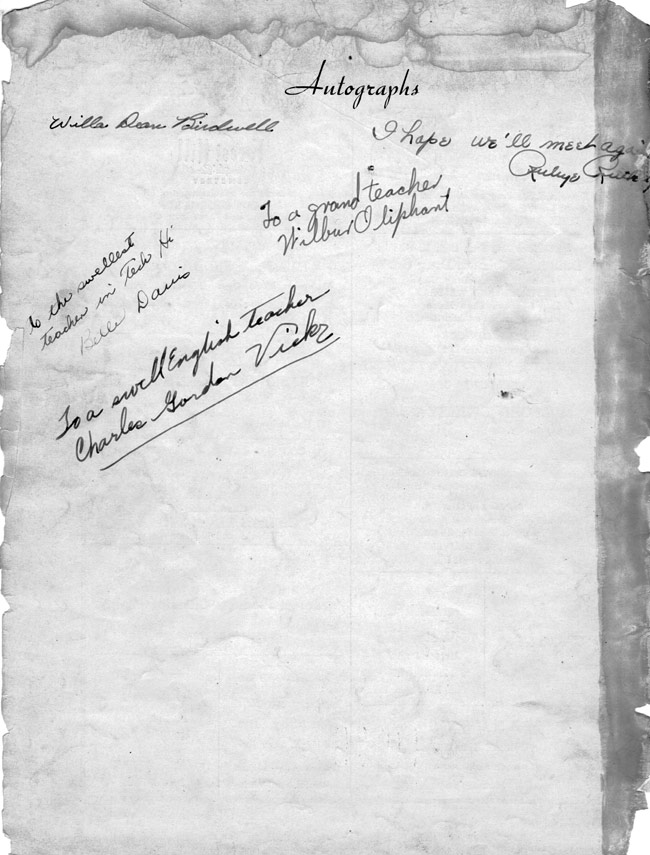 Autographs
Willa Dean Birdwell
I hope we'll meet again
Rubye
To a grand teacher
Wilbur Oliphant
To the swellest
teacher in Tech Hi
Belle Davis
To a swell English teacher
Charles Gordon Vick